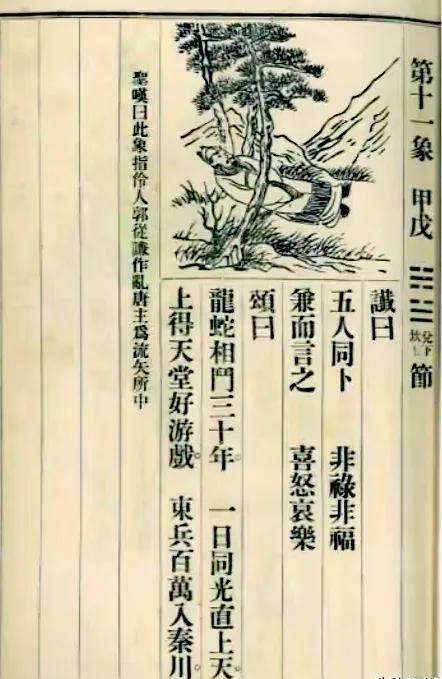 第十一象 甲戌 ䷻ 兌下坎上 節
讖曰
五人同卜 非祿非福
兼而言之 喜怒哀樂
頌曰
龍蛇相鬥三十年。一日同光直上天。
上得天堂好游戲。東兵百萬入秦川。
聖嘆曰此象指伶人郭從謙作亂唐主爲流矢所中